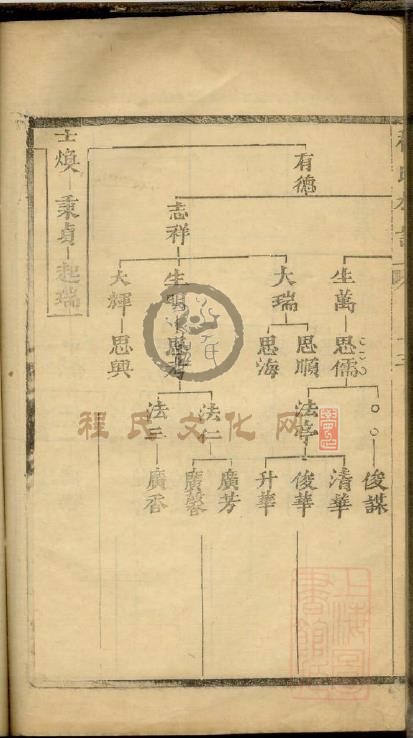 有德
士煥 秉貞 起瑞
志祥
生萬 思儒
大瑞
思順
思海
生明
大輝 思興
法亭
法仁
法三
俊謀
清華
俊華
升華
廣芳
廣馨
廣香
程氏文化网
上海圖書館藏